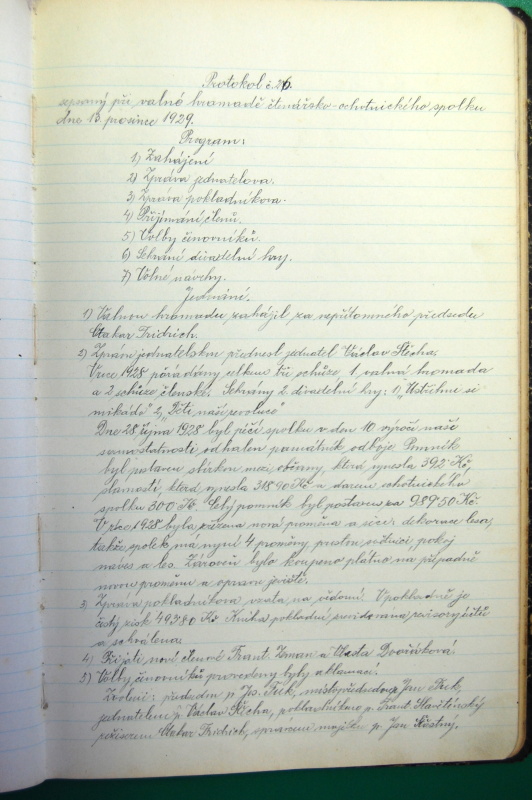 Protokol č. 26.
sepsaný při valné hromadě čtenářsko-ochotnického spolku
dne 13. prosince 1929.
Program:
1) Zahájení
2) Zpráva jednatelova.
3) Zpráva pokladníkova.
4) Přijímání členů.
5) Volby činovníků.
6) Sehrání divadelní hry.
7) Volné návrhy.
Jednání.
1) Valnou hromadu zahájil za nepřítomného předsedu
Otakar Fridrich.
2) Zprávu jednatelskou přednesl jednatel Václav Štěcha.
V roce 1928 pořádány celkem tři schůze 1 valná hromada
a 2 schůze členské. Sehrány 2 divadelní hry: 1) „Ustřihne si
mikádo" 2) „Děti naší revoluce"
Dne 28. října 1928 byl péčí spolku v den 10. výročí naší
samostatnosti odhalen památník odboje. Pomník
byl postaven sbírkou mezi občany, která vynesla 392 Kč,
slavností, která vynesla 318.90 Kč a darem ochotnického
spolku 300 Kč. Celý pomník byl postaven za 989.50 Kč.
V roce 1928 byla zřízena nová proměna a sice: dekorace lesa,
takže spolek má nyní 4 proměny, prostou světnici, pokoj
náves a les. Zároveň bylo koupeno plátno na případně
novou proměnu a opravu jeviště.
3) Zpráva pokladníkova vzata na vědomí. V pokladně je
čistý zisk 493.80 Kč. Kniha pokladní revidována revisory účtů
a schválena.
4) Přijati noví členové Frant. Zman a Vlasta Dvořáková.
5) Volby činovníků provedeny byly aklamací.
Zvoleni: předsedou p. Jos. Frik, místopředsedou p. Jan Frik,
jednatelem p. Václav Štěcha, pokladníkem p. Frant.
režisérem Otakar Fridrich, správcem majetku p. Jan Šťastný.